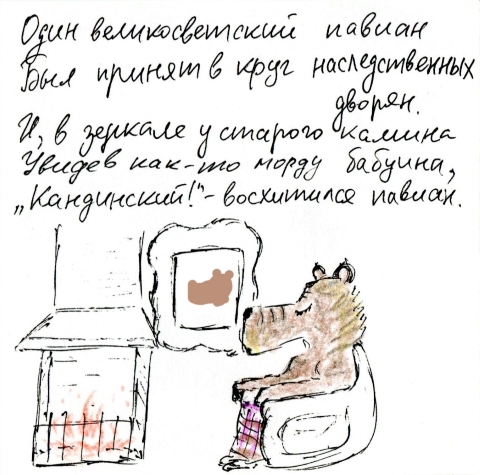 Один великосветский павиан
Был принят в круг наследственных
дворян.
И, в зеркале у старого камина
Увидев как-то морду бабуина,
„Кандинский!"- восхитился павиан.